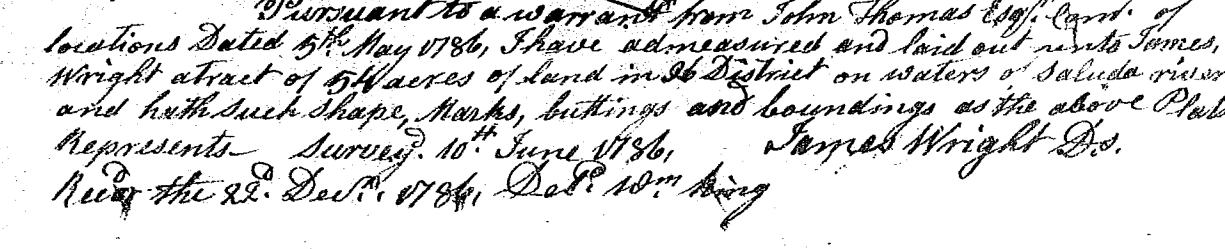 Pursuant to a warrant from John Thomas Esqr. Com. of
locations Dated 5th May 1786, I have admeasured and laid out unto James,
Wright a tract of 54 acres of land in 96 District on waters of Saluda river
and hath such shape, Marks, buttings and boundings as the above Plat
Represents Surveyd. 10th. June 1786, James Wright D.s.
Recd. the 22d. Decr. 1786, Wm. King